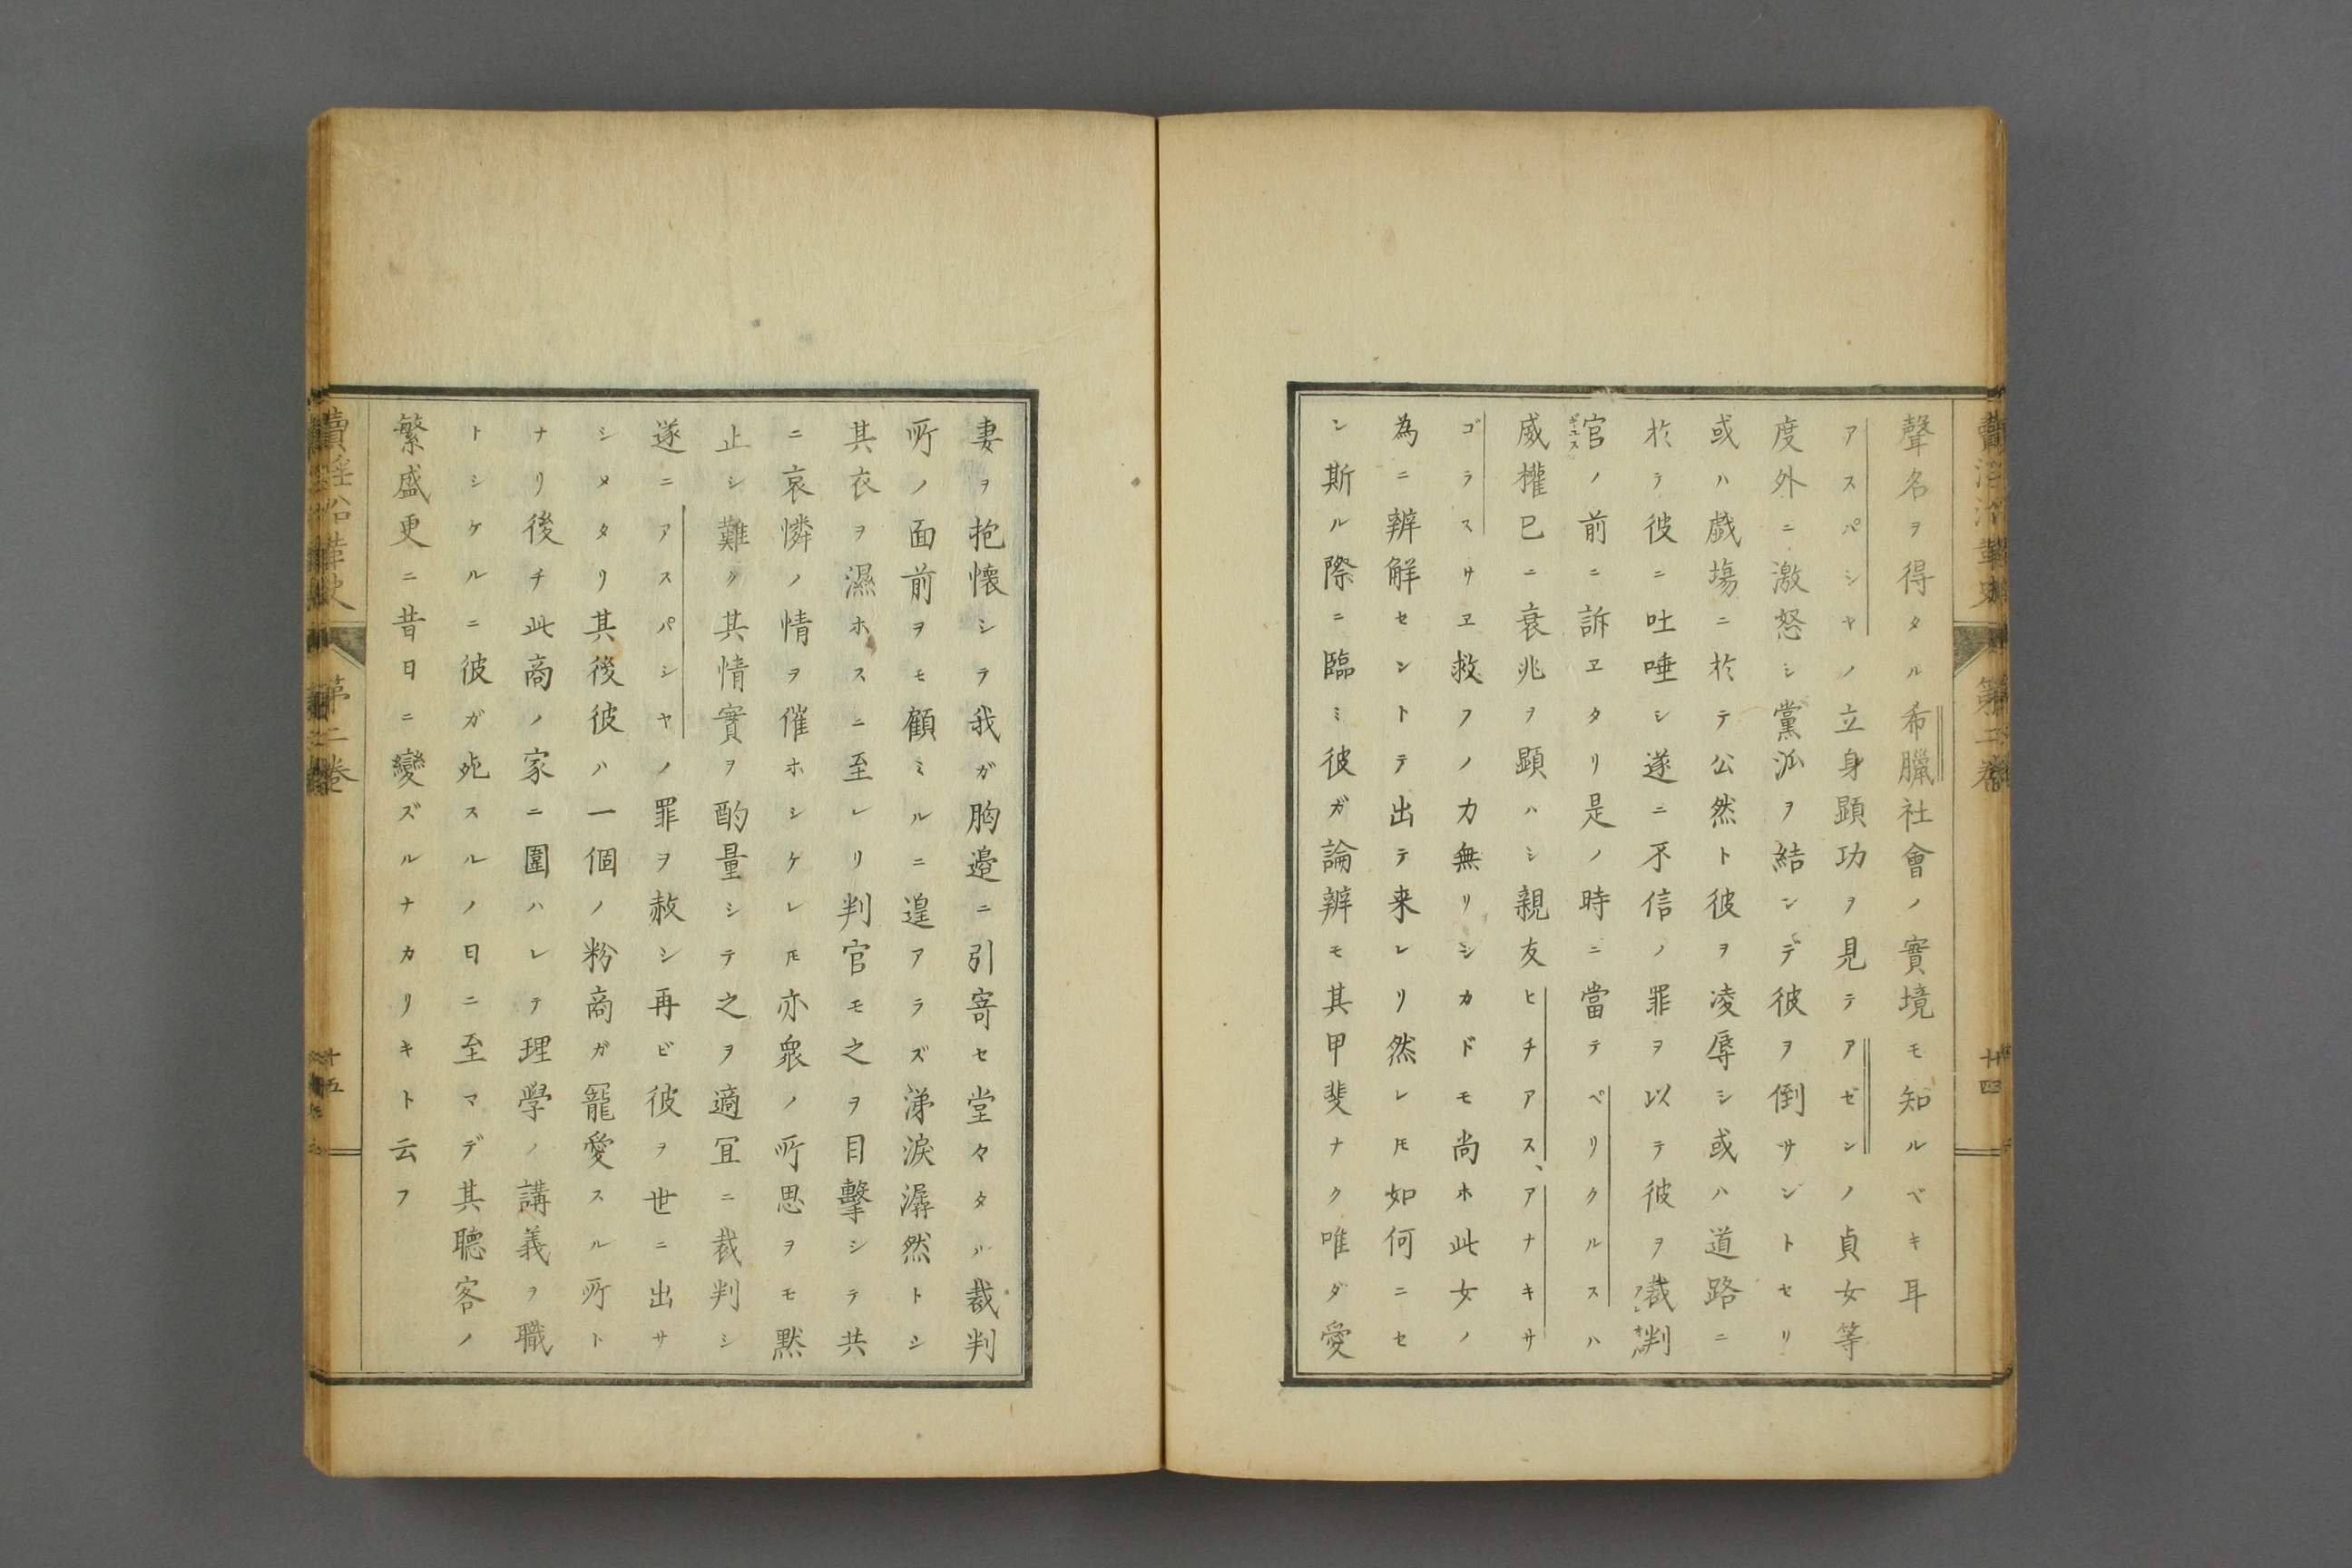 聲名ヲ得タル希臘社會ノ實境モ知ルベキ耳
アスパシヤノ立身顕功ヲ見テアゼンノ貞女等
度外ニ激怒シ黨派ヲ結ンデ彼ヲ倒サントセリ
或ハ戯塲ニ於テ公然ト彼ヲ凌辱シ或ハ道路ニ
於テ彼ニ吐唾シ遂ニ不信ノ罪ヲ以テ彼ヲ裁判
官ノ前ニ訴ヱタリ是ノ時ニ當テペリクルスハ
威權巳ニ衰兆ヲ顕ハシ親友ヒチアス、アナキサ
ゴラスサヱ救フノ力無リシカドモ尚ホ此女ノ
為ニ辨解セントテ出テ来レリ然レ𪜈如何ニセ
ン斯ル際ニ臨ミ彼ガ論辨モ其甲斐ナク唯ダ愛
賣淫沿革史
第二卷
十四
妻ヲ抱懐シテ我ガ胸邉ニ引寄セ堂々タル裁判
所ノ面前ヲモ顧ミルニ遑アラズ涕淚潺然トシ
其衣ヲ濕ホスニ至レリ判官モ之ヲ目擊シテ共
ニ哀憐ノ情ヲ催ホシケレ𪜈亦衆ノ所思ヲモ黙
止シ難ク其情實ヲ酌量シテ之ヲ適冝ニ裁判シ
遂ニアスパシヤノ罪ヲ赦シ再ビ彼ヲ世ニ出サ
シメタリ其後彼ハ一個ノ粉商ガ寵愛スル所ト
ナリ後チ此商ノ家ニ圍ハレテ理學ノ講義ヲ職
トシケルニ彼ガ死スルノ日ニ至マデ其聽客ノ
繁盛更ニ昔日ニ變ズルナカリキト云フ
賣淫沿革史
第二卷
十五